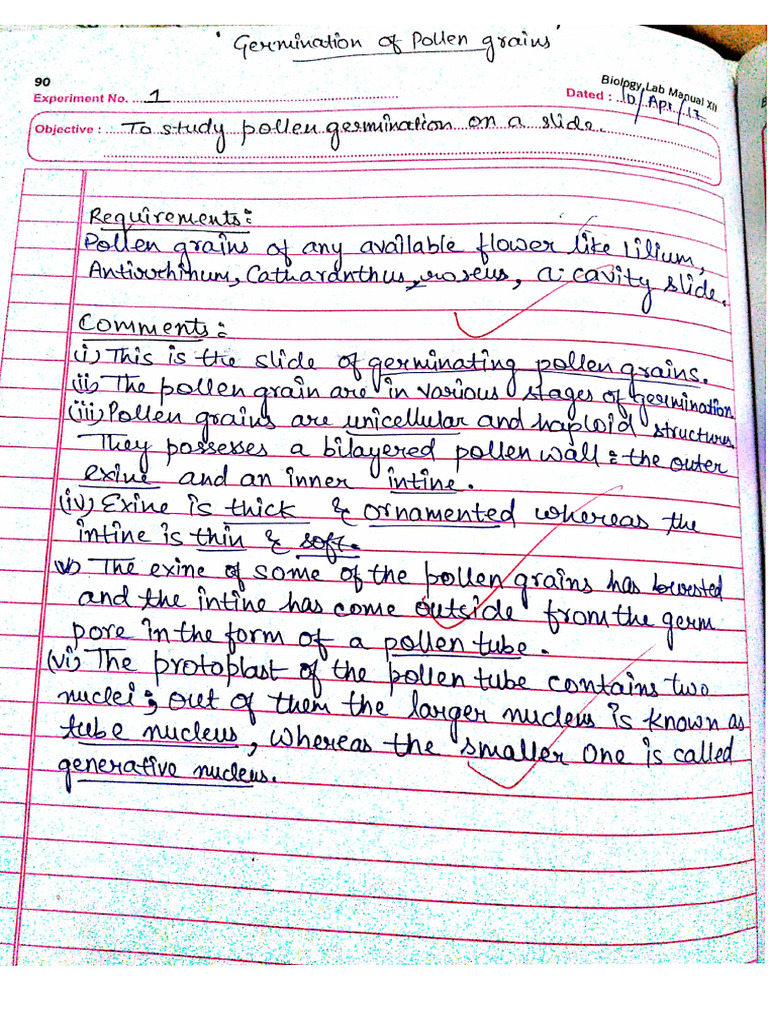 ' Germination of Pollen grains '
90
Biology Lab Manual XII
Experiment No. ... 1
Dated : .. 10/Apr/17
Objective : .. To study pollen germination on a slide.
Requirements:
Pollen grains of any available flower like Lilium,
Antirrhinum, Catharanthus, roseus, a cavity slide.
Comments:
(i) This is the slide of germinating pollen grains.
(ii) The pollen grain are in various stages of germination
(iii) Pollen grains are unicellular and haploid structures.
They possesses a bilayered pollen wall : the outer
exine and an inner intine.
(iv) Exine is thick & ornamented whereas the
intine is thin & soft.
v) The exine of some of the pollen grains has bursted
and the intine has come outside from the germ
pore in the form of a pollen tube.
(vi) The protoplast of the pollen tube contains two
nuclei ; out of them the larger nucleus is known as
tube nucleus, whereas the smaller one is called
generative nucleus.